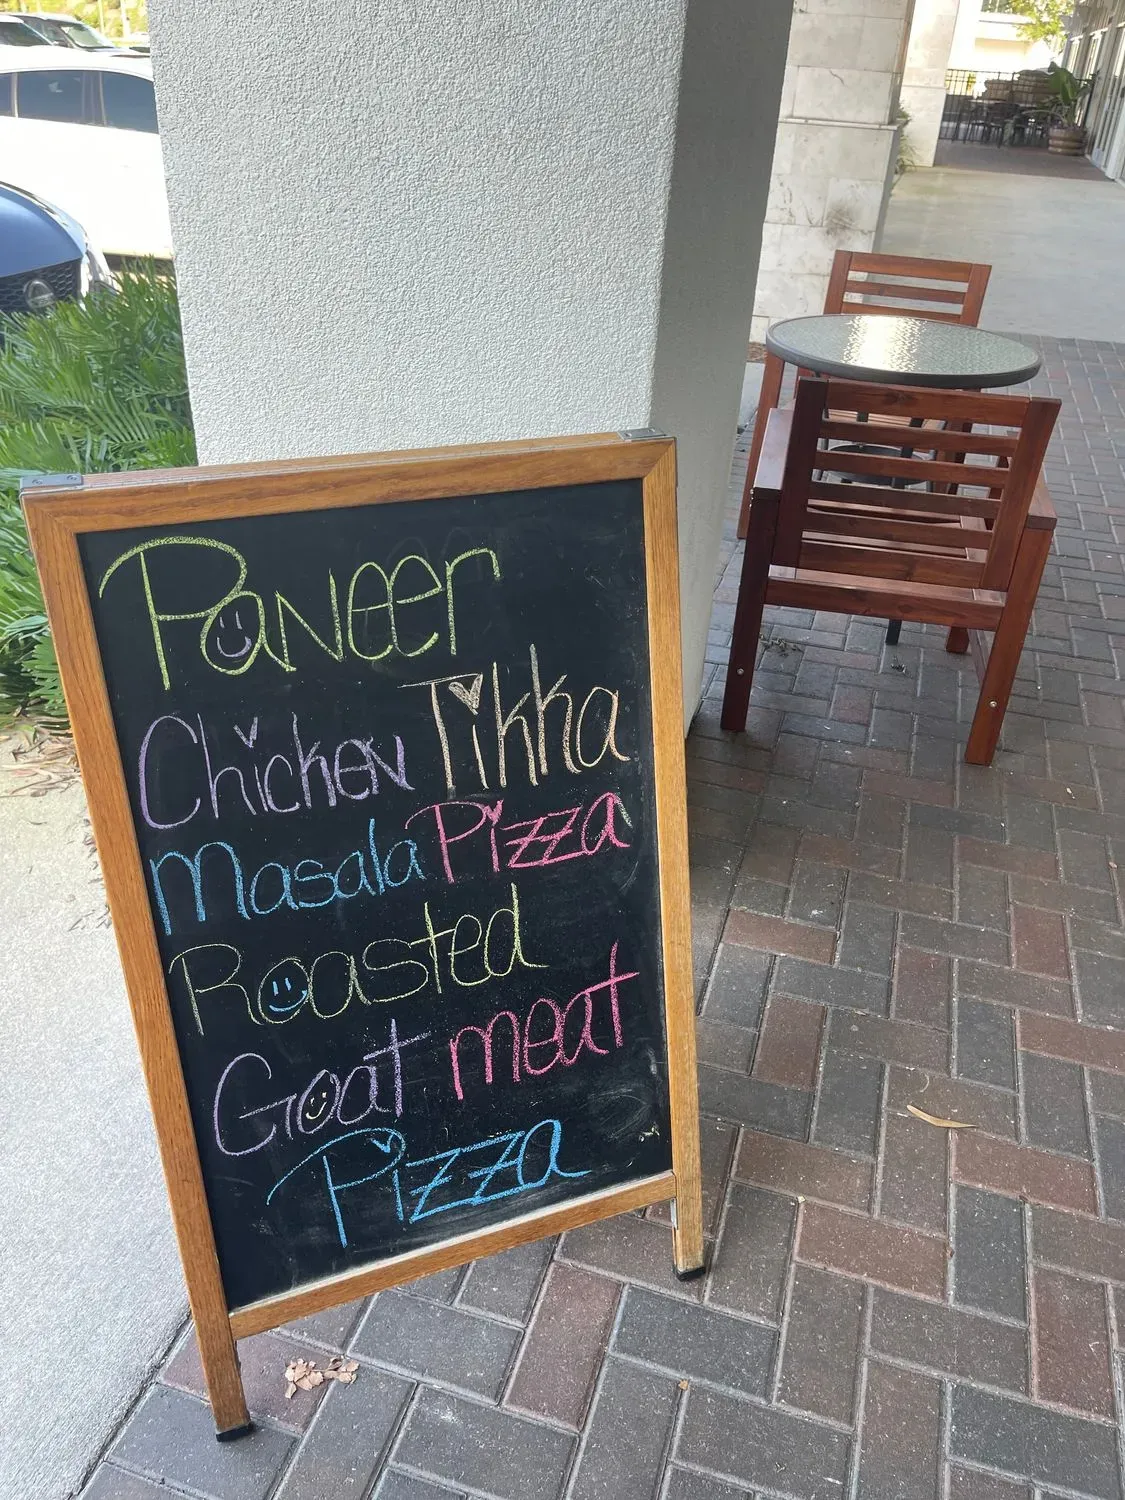 Paneer
Chicken Tikka
Masala Pizza
Roasted
Goat meat
Pizza